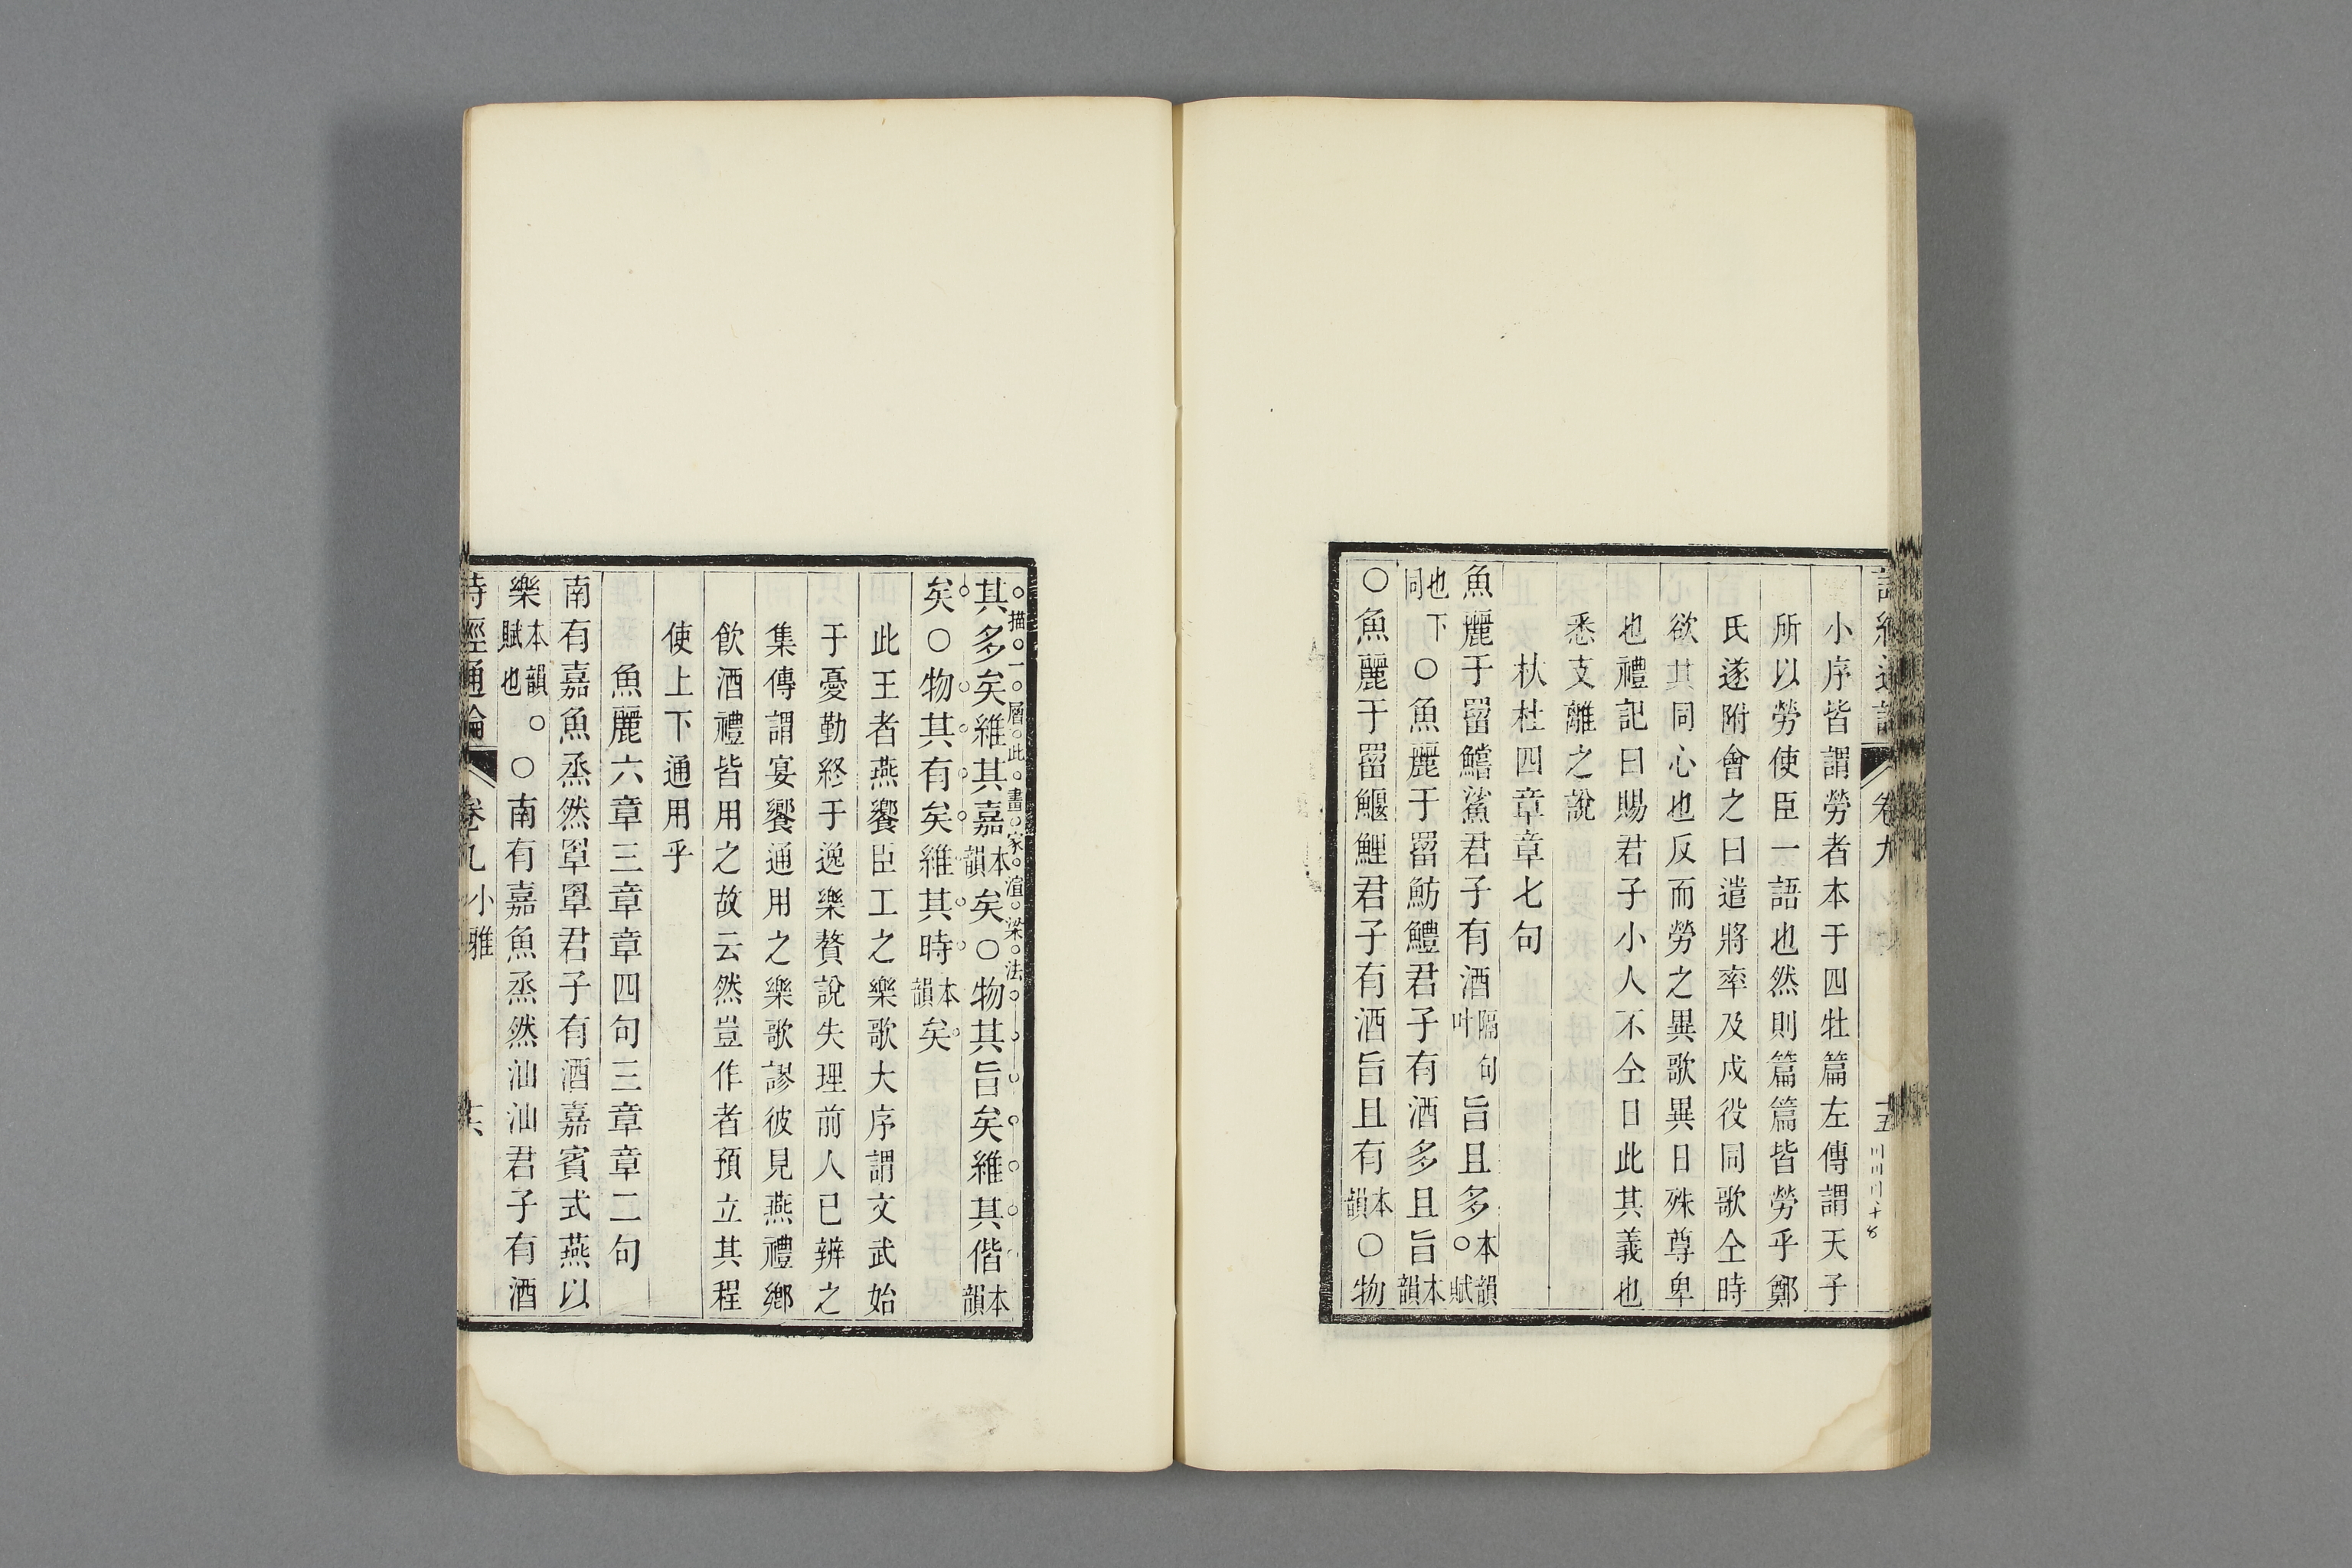 小序皆謂勞者本于四牡篇左傳謂天子
所以勞使臣一語也然則篇篇皆勞乎鄭
氏遂附會之曰遣將率及戍役同歌仝時
欲其同心也反而勞之異歌異日殊尊卑
也禮記曰賜君子小人不仝日此其義也
悉支離之說
杕杜四章章七句
魚麗于罶鱨鯊君子有酒隔句叶旨且多本韻○賦
也下同○魚麗于罶魴鱧君子有酒多且旨本韻
○魚麗于罶鰋鯉君子有酒旨且有本韻○物
其多矣維其嘉本韻矣○物其旨矣維其偕本韻
描一層此畫家渲染法
矣○物其有矣維其時本韻矣
此王者燕饗臣工之樂歌大序謂文武始
于憂勤終于逸樂贅說失理前人已辨之
集傳謂宴饗通用之樂歌謬彼見燕禮鄉
飲酒禮皆用之故云然豈作者預立其程
使上下通用乎
魚麗六章三章章四句三章章二句
南有嘉魚烝然罩罩君子有酒嘉賓式燕以
樂本韻○賦也○南有嘉魚烝然汕汕君子有酒
詩經通論 卷九 小雅 十六